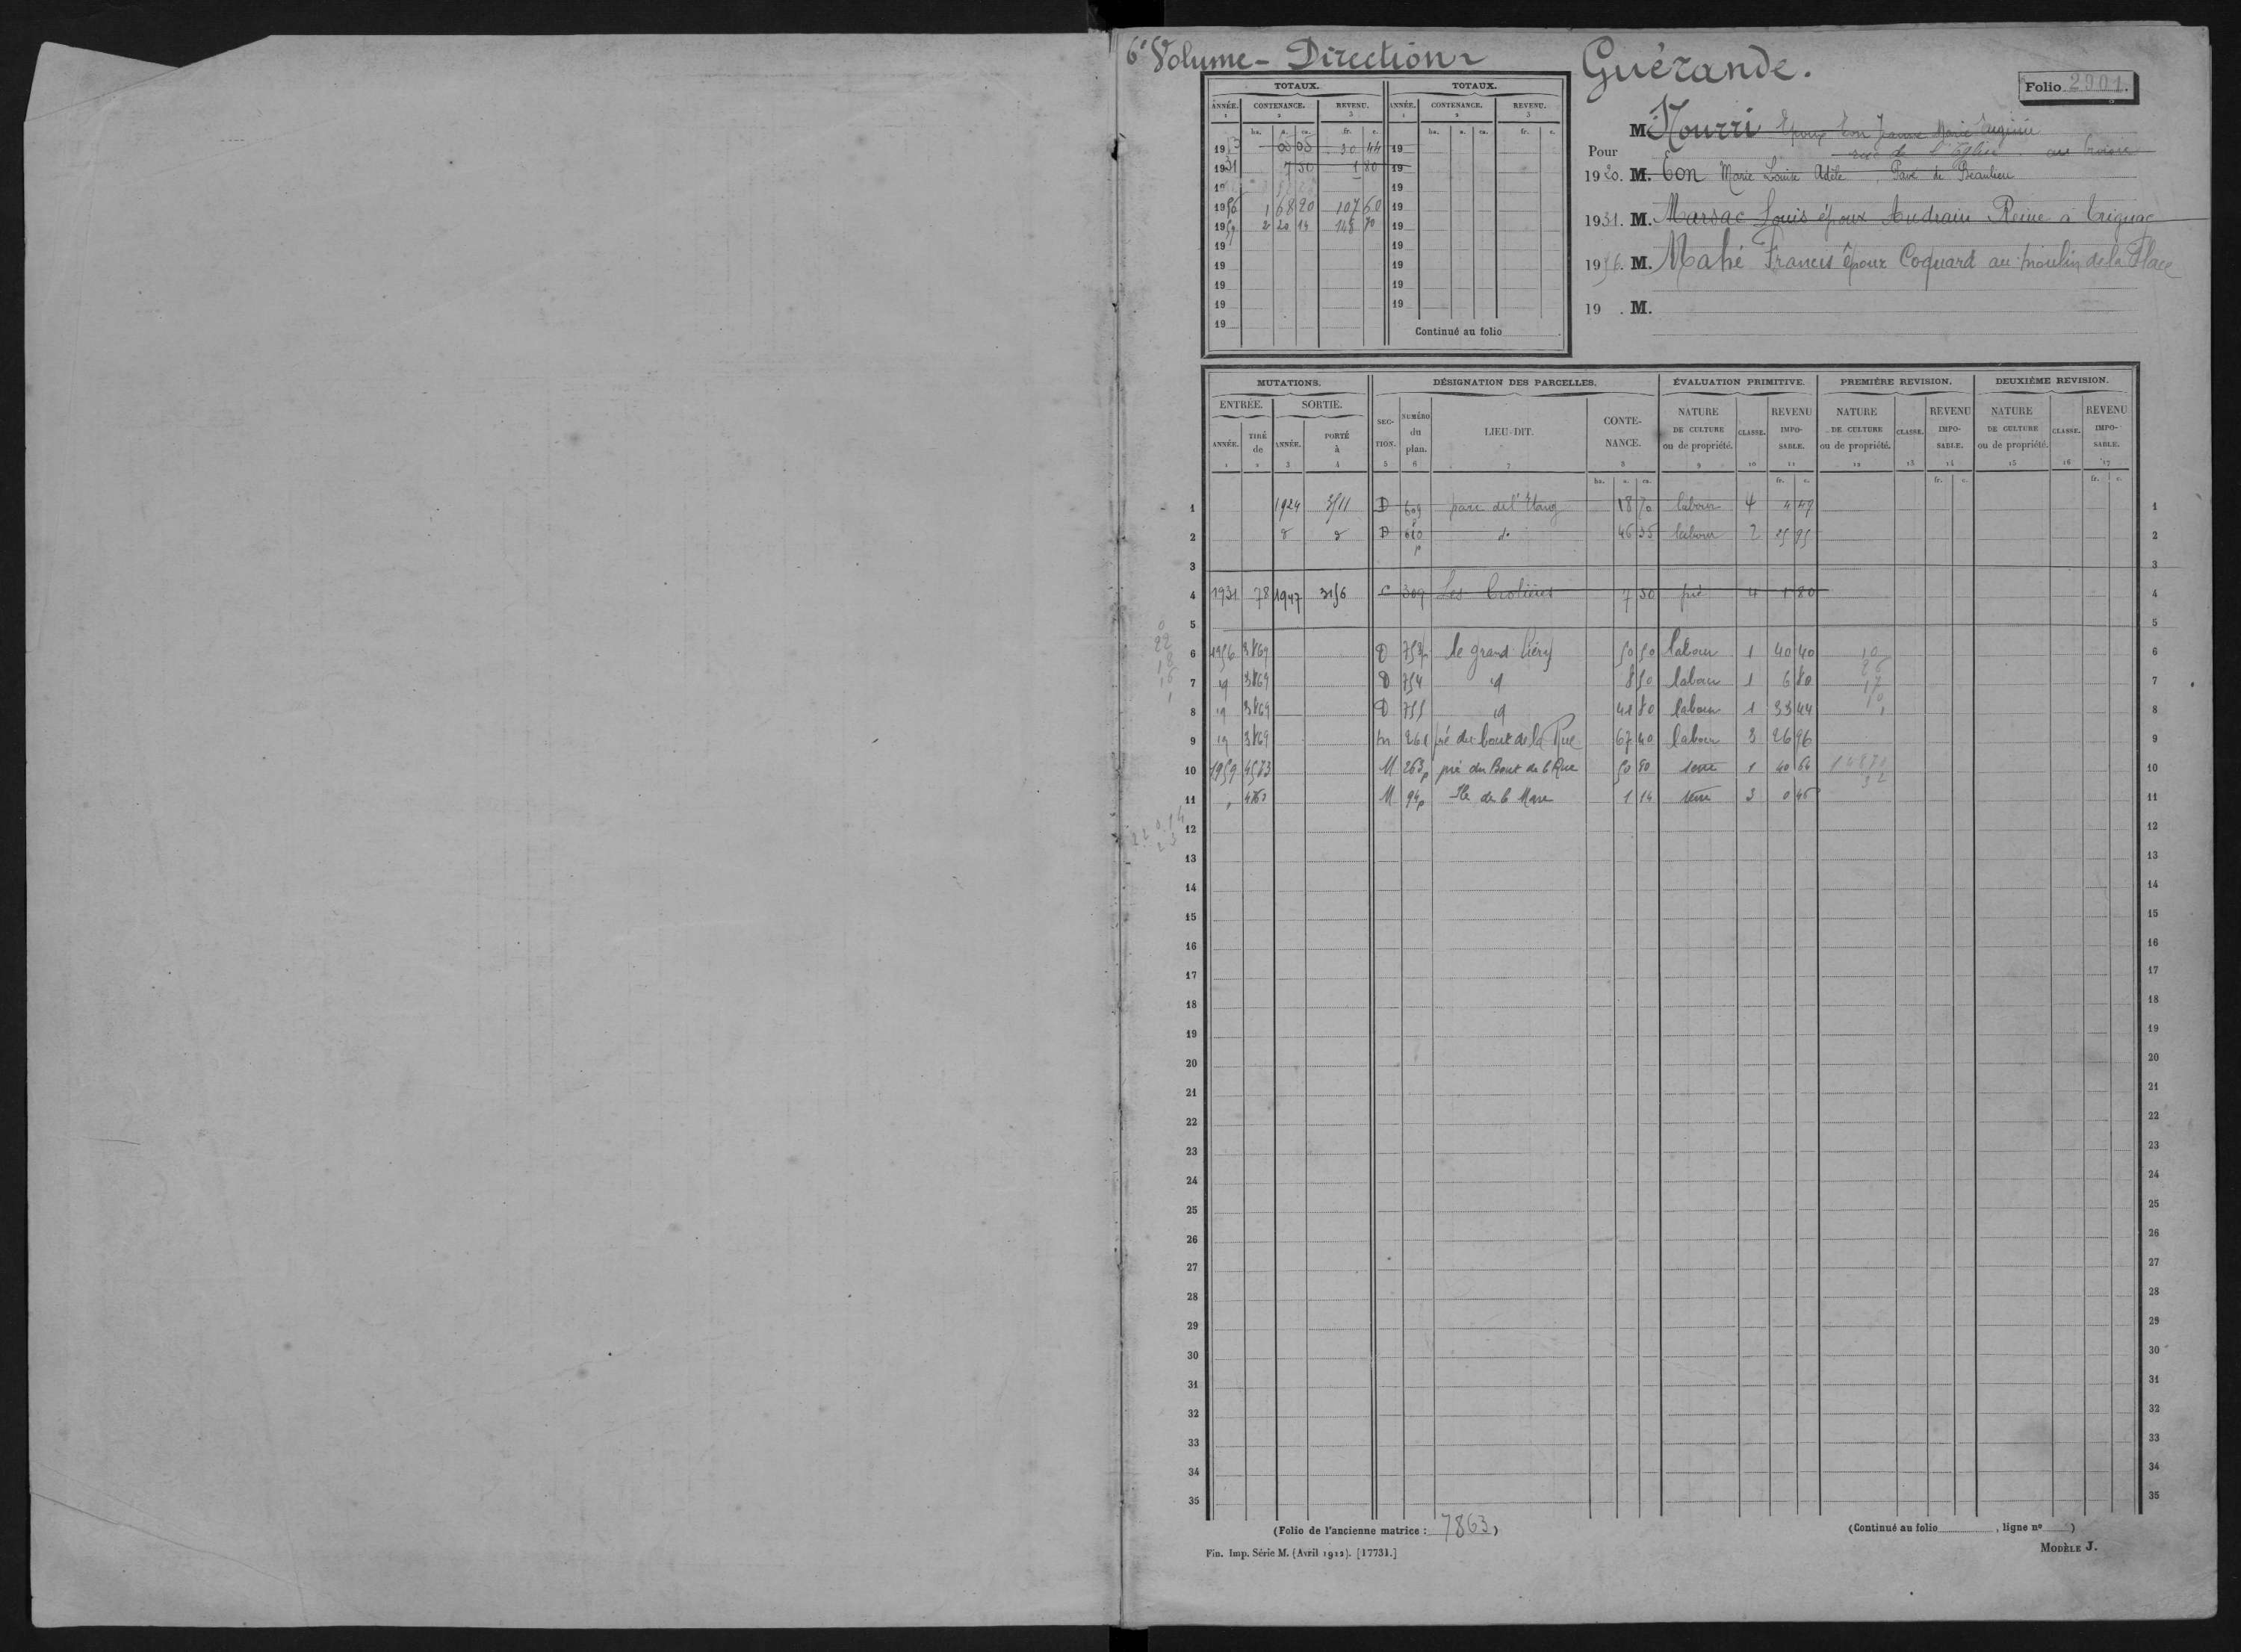 6e Volume - Direction
Guérande.
Folio 2901.
TOTAUX. TOTAUX.
ANNÉE. CONTENANCE. REVENU. ANNÉE. CONTENANCE. REVENU.
1 2 3 1 2 3
ha. a. ca. fr. c. ha. a. ca. fr. c.
1913 65 05 30 44 19
1931 7 50 1 80 19
19 19
1956 1 68 20 107 60 19
1959 2 20 14 148 70 19
19 19
19 19
19 19
19 19
19 Continué au folio
M. Nourri Epoux Eon Jeanne Marie
Pour rue de l'Eglise au
1920. M. Eon Marie Louise Adèle, Pavé de Beaulieu
1931. M. Marsac Louis époux Audrain Reine à Trignac
1956. M. Mahé Francis époux Coquard au moulin de la Place
19 . M.
MUTATIONS. DÉSIGNATION DES PARCELLES. ÉVALUATION PRIMITIVE. PREMIÈRE REVISION. DEUXIÈME REVISION.
ENTRÉE. SORTIE. SECTION. NUMÉRO du plan. LIEU-DIT. CONTENANCE. NATURE DE CULTURE ou de propriété. CLASSE. REVENU IMPOSABLE. NATURE DE CULTURE ou de propriété. CLASSE. REVENU IMPOSABLE. NATURE DE CULTURE ou de propriété. CLASSE. REVENU IMPOSABLE.
ANNÉE. TIRÉ de ANNÉE. PORTÉ à
1 2 3 4 5 6 7 8 9 10 11 12 13 14 15 16 17
ha. a. ca. fr. c. fr. c. fr. c.
1 1924 3511 D 609 parc de l'Etang 18 70 labour 4 4 49 1
2 d d D 610 d° 46 35 labour 2 25 95 2
3 3
4 1931 78 1947 3156 C 309 Les 7 50 pré 4 1 80 4
5 5
6 1956 3869 D 753 le grand 50 50 labour 1 40 40 6
7 id 3869 D 754 id 8 50 labour 1 6 80 7
8 id 3869 D 755 id 41 80 labour 1 33 44 8
9 id 3869 M 261 pré du bout de la Rue 67 40 labour 3 26 96 9
10 1959 4573 M 263p pré du Bout de la Rue 50 80 terre 1 40 64 14870 10
11 " M 94p Ile de la Mare 1 14 terre 3 0 46 11
12 12
13 13
14 14
15 15
16 16
17 17
18 18
19 19
20 20
21 21
22 22
23 23
24 24
25 25
26 26
27 27
28 28
29 29
30 30
31 31
32 32
33 33
34 34
35 35
(Folio de l'ancienne matrice : 7863)
(Continué au folio , ligne no )
Fin. Imp. Série M. (Avril 1912). [17731.]
MODÈLE J.